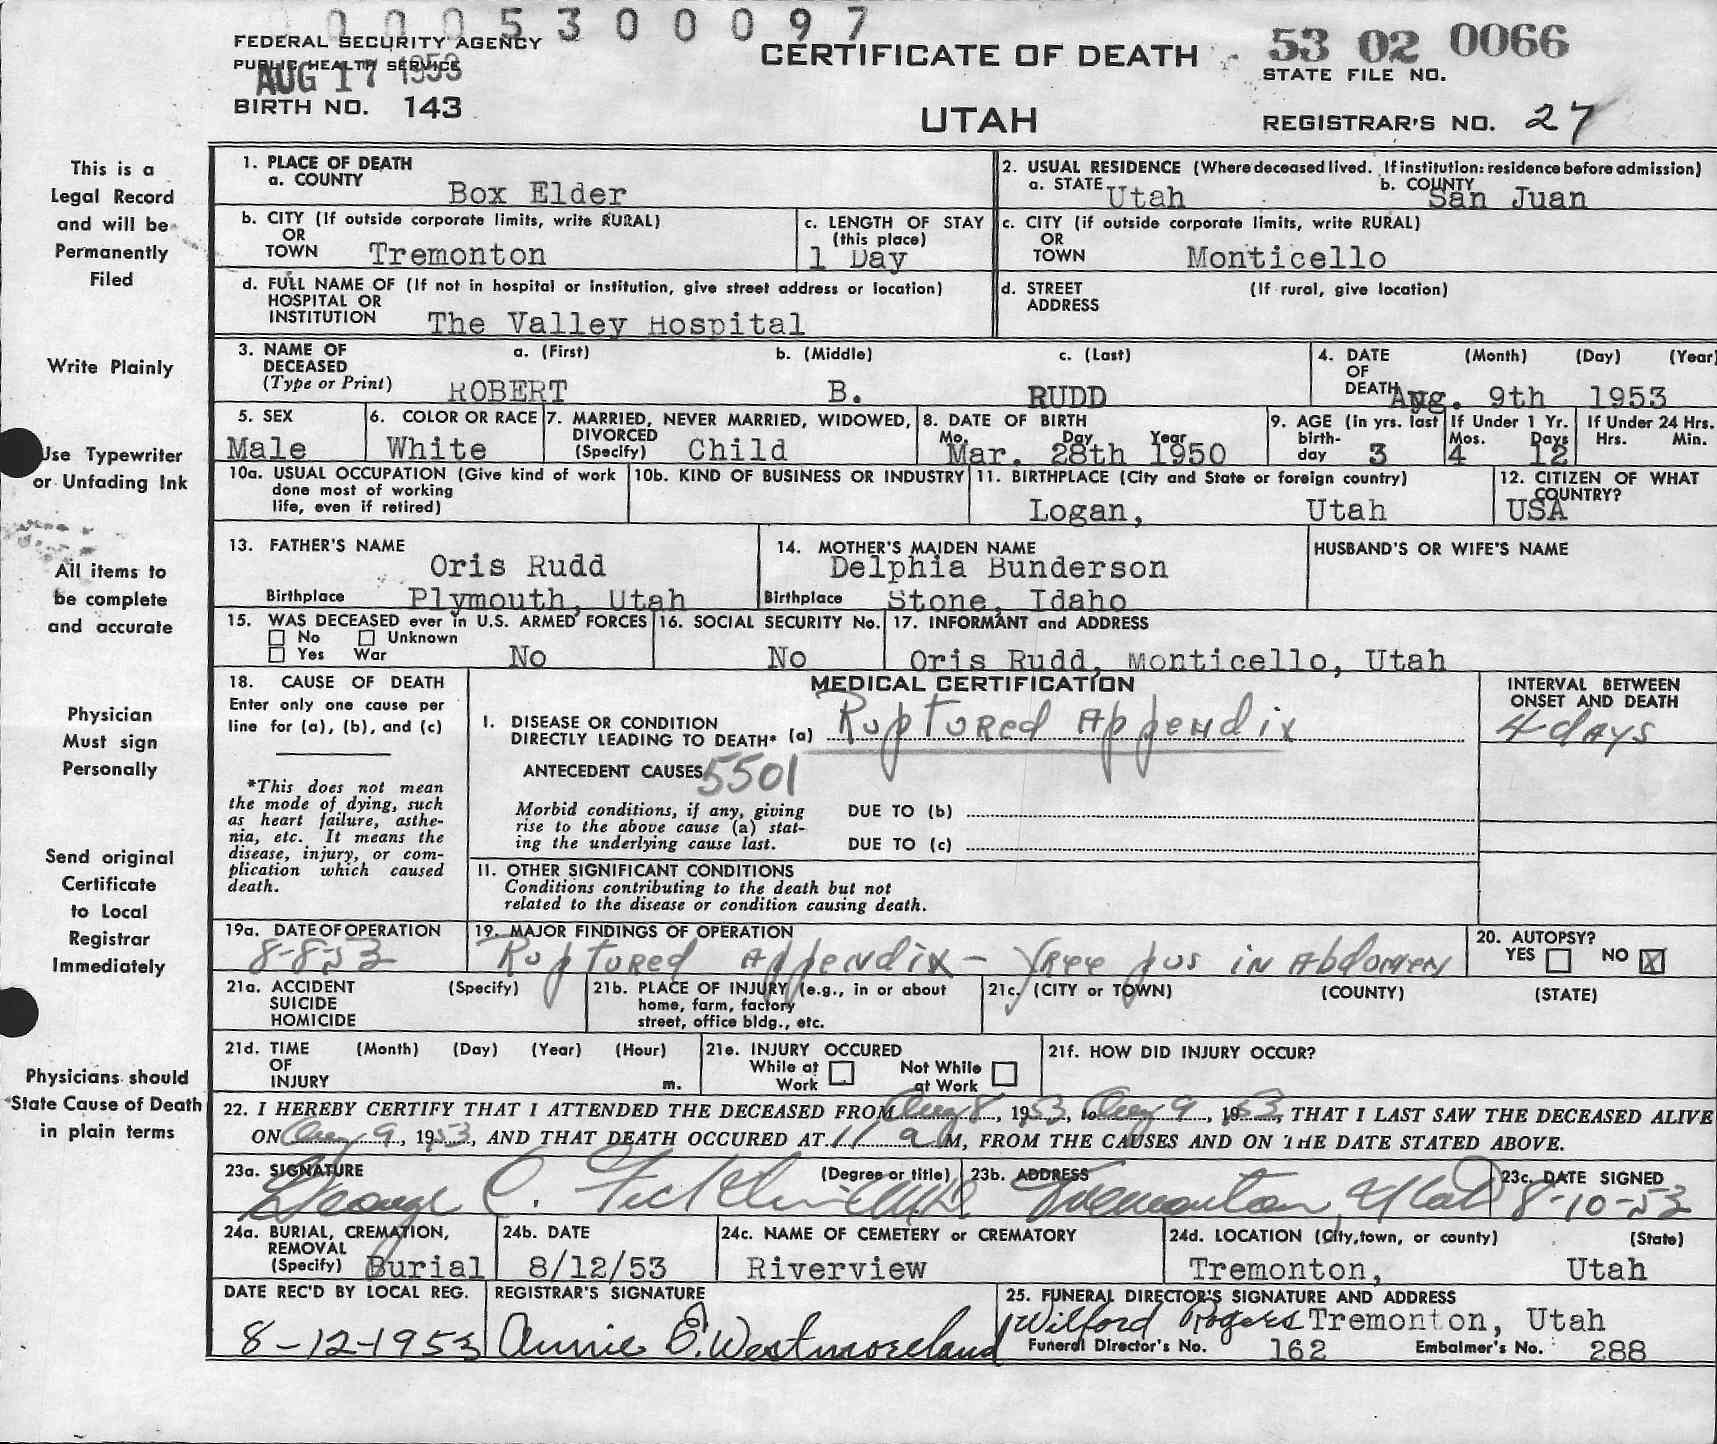 0 0 0 5 3 0 0 0 9 7
FEDERAL SECURITY AGENCY
PUBLIC HEALTH SERVICE
AUG 17 1953
BIRTH NO. 143
CERTIFICATE OF DEATH
UTAH
53 02 0066
STATE FILE NO.
REGISTRAR'S NO. 27
This is a
Legal Record
and will be
Permanently
Filed
Write Plainly
Use Typewriter
or Unfading Ink
All items to
be complete
and accurate
Physician
Must sign
Personally
Send original
Certificate
to Local
Registrar
Immediately
Physicians should
State Cause of Death
in plain terms
1. PLACE OF DEATH
a. COUNTY Box Elder
2. USUAL RESIDENCE (Where deceased lived. If institution: residence before admission)
a. STATE Utah b. COUNTY San Juan
b. CITY (If outside corporate limits, write RURAL)
OR
TOWN Tremonton
c. LENGTH OF STAY
(this place)
1 Day
c. CITY (if outside corporate limits, write RURAL)
OR
TOWN Monticello
d. FULL NAME OF (If not in hospital or institution, give street address or location)
HOSPITAL OR
INSTITUTION The Valley Hospital
d. STREET (If rural, give location)
ADDRESS
3. NAME OF a. (First) b. (Middle) c. (Last)
DECEASED
(Type or Print) ROBERT B. RUDD
4. DATE (Month) (Day) (Year)
OF
DEATH Aug. 9th 1953
5. SEX
Male
6. COLOR OR RACE
White
7. MARRIED, NEVER MARRIED, WIDOWED,
DIVORCED
(Specify) Child
8. DATE OF BIRTH
Mo. Day Year
Mar. 28th 1950
9. AGE (in yrs. last
birth-
day 3
If Under 1 Yr.
Mos. Days
4 12
If Under 24 Hrs.
Hrs. Min.
10a. USUAL OCCUPATION (Give kind of work
done most of working
life, even if retired)
10b. KIND OF BUSINESS OR INDUSTRY
11. BIRTHPLACE (City and State or foreign country)
Logan, Utah
12. CITIZEN OF WHAT
COUNTRY?
USA
13. FATHER'S NAME
Oris Rudd
Birthplace Plymouth, Utah
14. MOTHER'S MAIDEN NAME
Delphia Bunderson
Birthplace Stone, Idaho
HUSBAND'S OR WIFE'S NAME
15. WAS DECEASED ever in U.S. ARMED FORCES
No Unknown
Yes War No
16. SOCIAL SECURITY No.
No
17. INFORMANT and ADDRESS
Oris Rudd, Monticello, Utah
18. CAUSE OF DEATH
Enter only one cause per
line for (a), (b), and (c)
*This does not mean
the mode of dying, such
as heart failure, asthe-
nia, etc. It means the
disease, injury, or com-
plication which caused
death.
MEDICAL CERTIFICATION
I. DISEASE OR CONDITION
DIRECTLY LEADING TO DEATH* (a) Ruptured Appendix
ANTECEDENT CAUSES 5501
Morbid conditions, if any, giving
rise to the above cause (a) stat-
ing the underlying cause last.
DUE TO (b)
DUE TO (c)
II. OTHER SIGNIFICANT CONDITIONS
Conditions contributing to the death but not
related to the disease or condition causing death.
INTERVAL BETWEEN
ONSET AND DEATH
4 days
19a. DATE OF OPERATION
8-8-53
19. MAJOR FINDINGS OF OPERATION
Ruptured Appendix - free pus in Abdomen
20. AUTOPSY?
YES NO X
21a. ACCIDENT (Specify)
SUICIDE
HOMICIDE
21b. PLACE OF INJURY (e.g., in or about
home, farm, factory
street, office bldg., etc.
21c. (CITY or TOWN) (COUNTY) (STATE)
21d. TIME (Month) (Day) (Year) (Hour)
OF
INJURY m.
21e. INJURY OCCURED
While at Work Not While at Work
21f. HOW DID INJURY OCCUR?
22. I HEREBY CERTIFY THAT I ATTENDED THE DECEASED FROM Aug 8, 1953, to Aug 9, 1953, THAT I LAST SAW THE DECEASED ALIVE
ON Aug 9, 1953, AND THAT DEATH OCCURED AT 11 a M, FROM THE CAUSES AND ON THE DATE STATED ABOVE.
23a. SIGNATURE (Degree or title)
George C. Ficklin M.D.
23b. ADDRESS
Tremonton, Utah
23c. DATE SIGNED
8-10-53
24a. BURIAL, CREMATION,
REMOVAL
(Specify) Burial
24b. DATE
8/12/53
24c. NAME OF CEMETERY or CREMATORY
Riverview
24d. LOCATION (City, town, or county) (State)
Tremonton, Utah
DATE REC'D BY LOCAL REG.
8-12-1953
REGISTRAR'S SIGNATURE
Annie E. Westmoreland
25. FUNERAL DIRECTOR'S SIGNATURE AND ADDRESS
Wilford Rogers Tremonton, Utah
Funeral Director's No. 162 Embalmer's No. 288